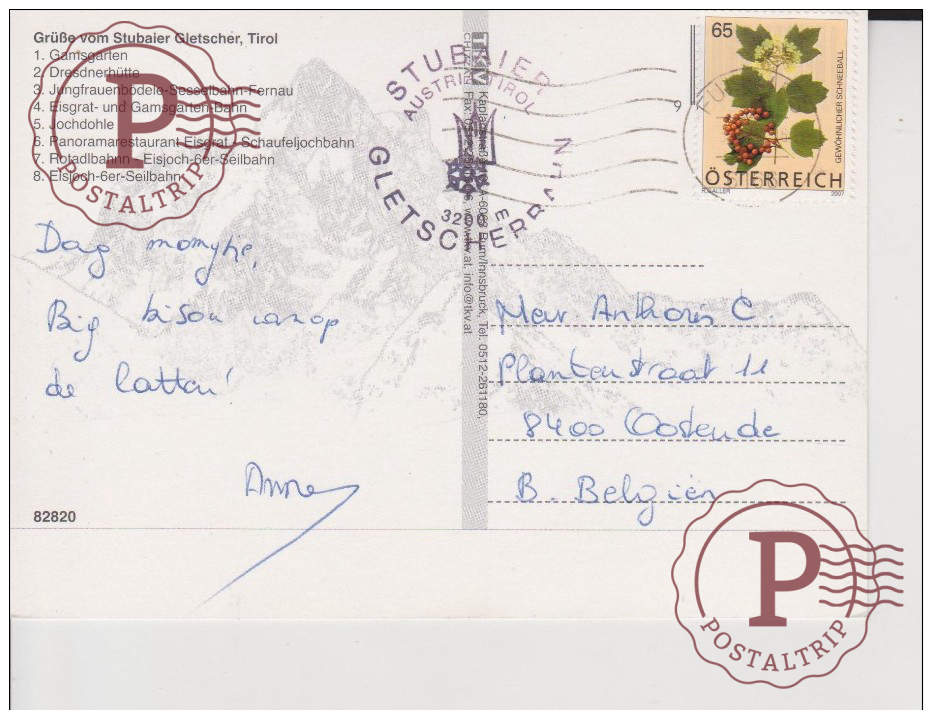 Grüße vom Stubaier Gletscher, Tirol
1. Gamsgarten
2. Dresdnerhütte
3. Jungfrauenbödele-Sesselbahn-Fernau
4. Eisgrat- und Gamsgarten-Bahn
5. Jochdohle
6. Panoramarestaurant Eisgrat - Schaufeljochbahn
7. Rotadlbahn - Eisjoch-6er-Seilbahn
8. Eisjoch-6er-Seilbahn
P
POSTALTRIP
Dag
Big bisou
de latten!
Anne
82820
STUBAIER
AUSTRIA TIROL
3200
GLETSCHERBAHN
TKV
A-6063 Rum/Innsbruck, Tel. 0512-261180,
www.tkv.at, info@tkv.at
65
GEWÖHNLICHER SCHNEEBALL
ÖSTERREICH
2007
9
Mevr. Anthonis C.
Plantenstraat 11
8400 Oostende
B. Belgiën
P
POSTALTRIP